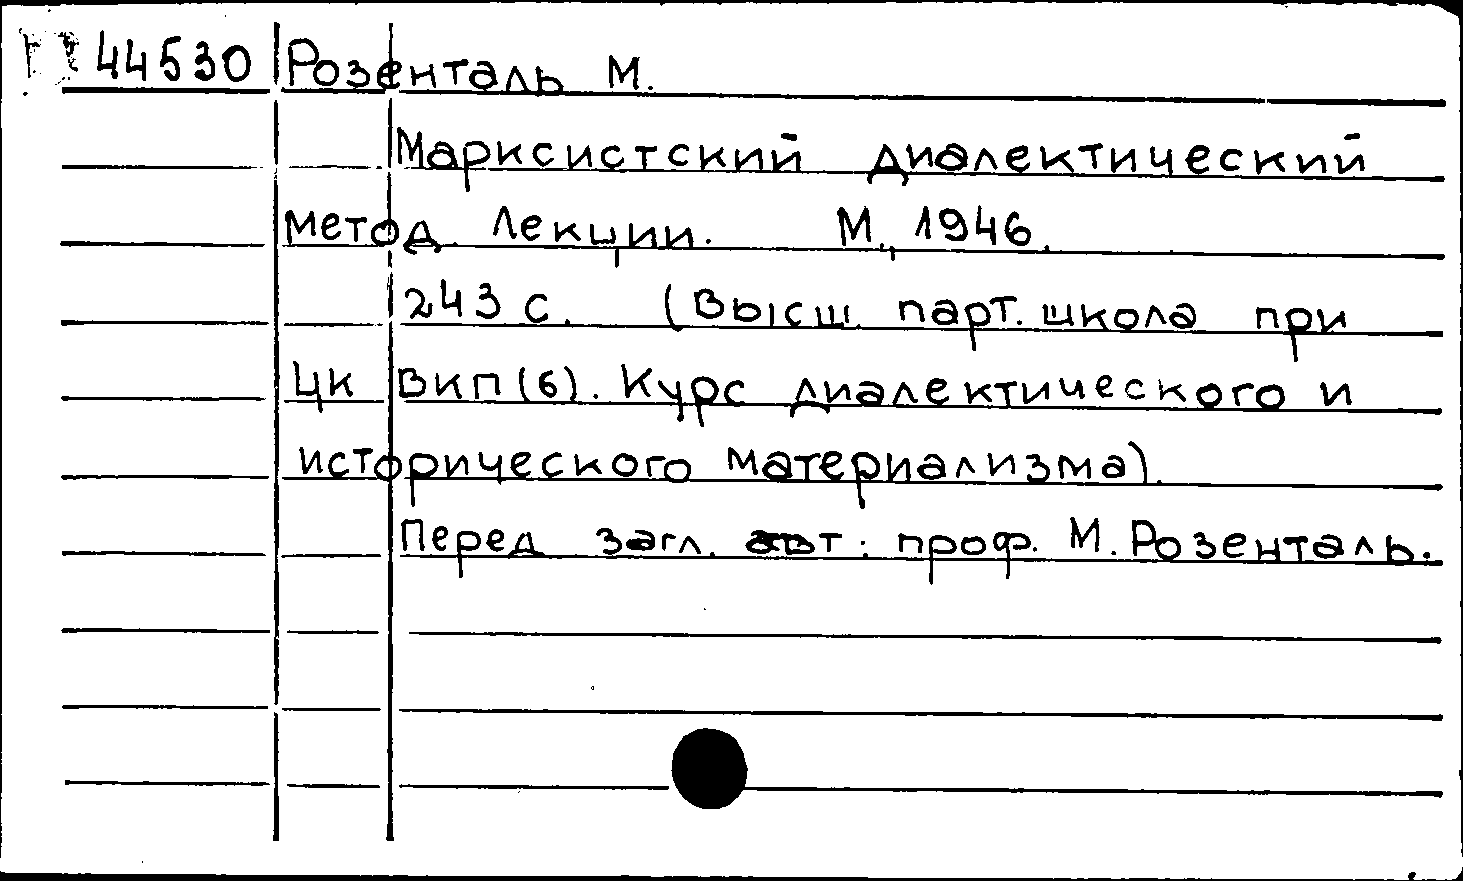 44530 Розенталь М.
Марксистский диалектический
метод. Лекции. М., 1946.
243 с. (Высш. парт. школа при
ЦК ВКП(б). Курс диалектического и
исторического материализма).
Перед загл. авт.: проф. М. Розенталь.